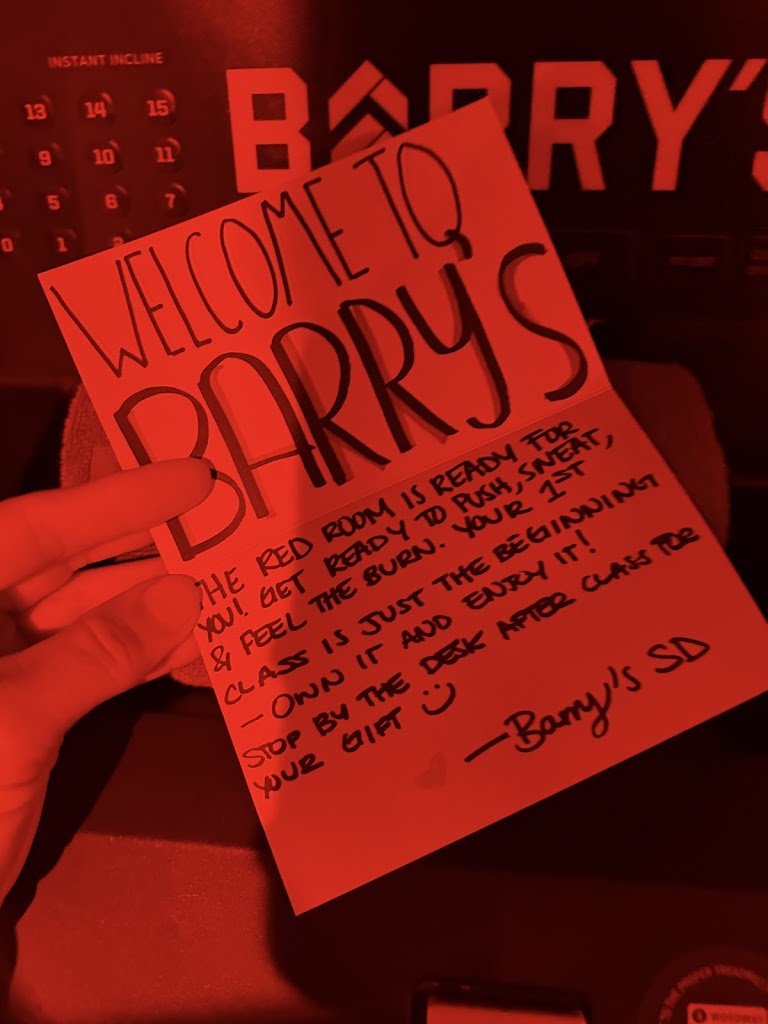 INSTANT INCLINE
13 14 15
9 10 11
5 6 7
0 1
BARRY'S
WELCOME TO
BARRY'S
THE RED ROOM IS READY FOR
YOU! GET READY TO PUSH, SWEAT,
& FEEL THE BURN. YOUR 1ST
CLASS IS JUST THE BEGINNING
- OWN IT AND ENJOY IT!
STOP BY THE DESK AFTER CLASS FOR
YOUR GIFT :)
—Barry's SD
WOODWAY